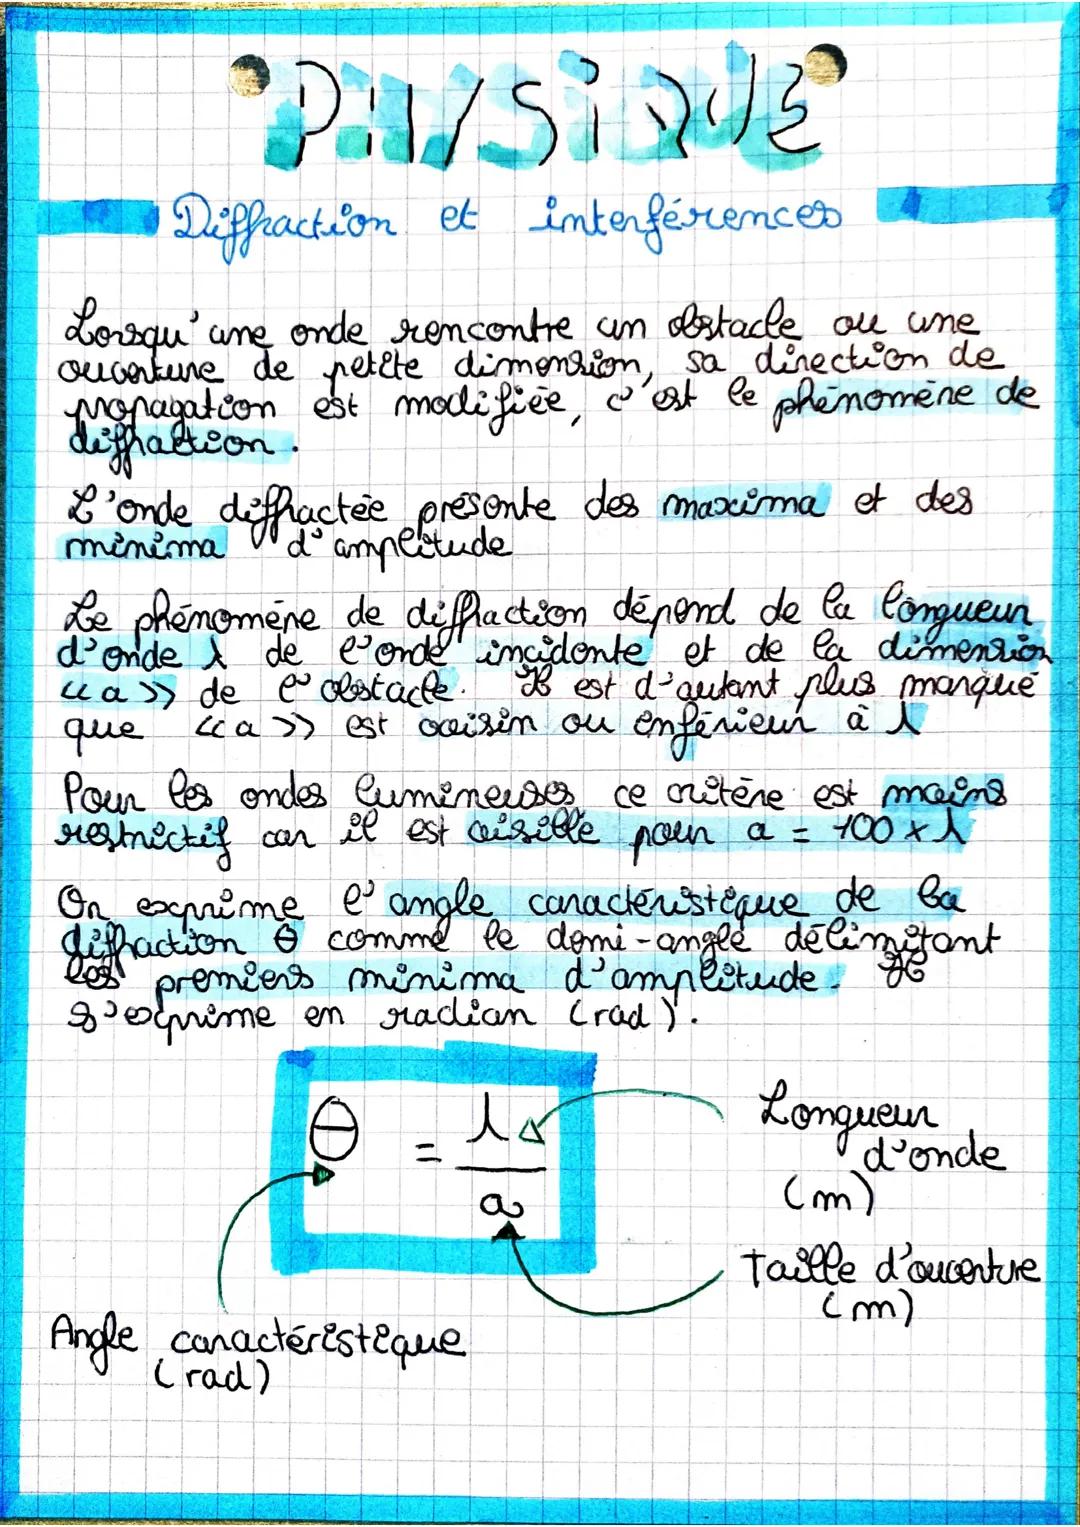 PHYSiQUE
Diffraction et interférences
Lorsqu'une onde rencontre un obstacle ou une
ouverture de petite dimension, sa direction de
propagation est modifiée, c'est le phénomène de
diffraction.
L'onde diffractée présente des maxima et des
minima d'amplitude
Le phénomène de diffraction dépend de la longueur
d'onde λ de l'onde incidente et de la dimension
<<a>> de l'obstacle. Il est d'autant plus marqué
que <<a>> est voisin ou inférieur à λ
Pour les ondes lumineuses ce critère est moins
restrictif car il est visible pour a = 100 x λ
On exprime l'angle caractéristique de la
diffraction θ comme le demi-angle délimitant
les premiers minima d'amplitude. Il
s'exprime en radian (rad).
θ = λ / a
Longueur
d'onde
(m)
Taille d'ouverture
(m)
Angle caractéristique
(rad)